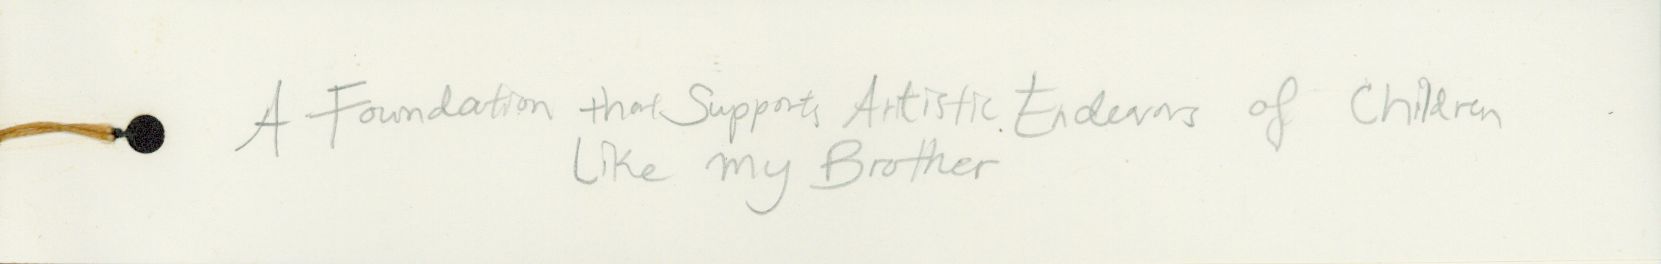 A Foundation that Supports Artistic Endeavors of Children
Like my Brother